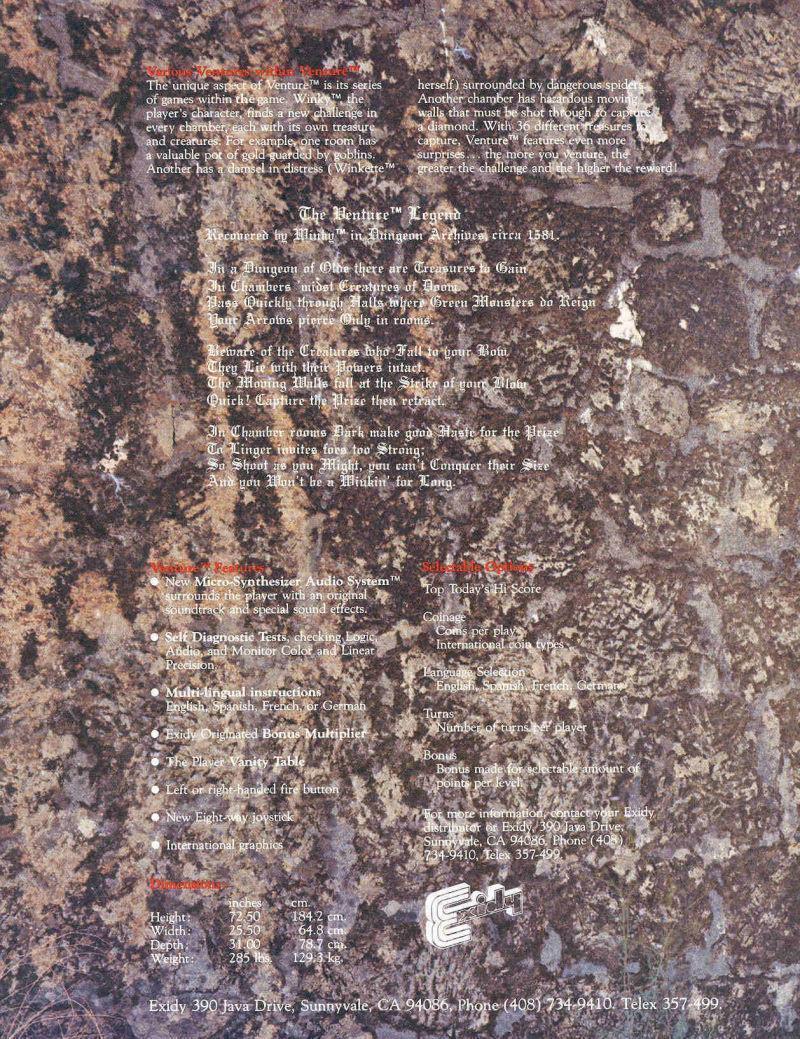 Various Ventures within Venture™
The unique aspect of Venture™ is its series
of games within the game. Winky™ the
player's character, finds a new challenge in
every chamber, each with its own treasure
and creatures. For example, one room has
a valuable pot of gold guarded by goblins.
Another has a damsel in distress (Winkette™
herself) surrounded by dangerous spiders.
Another chamber has hazardous moving
walls that must be shot through to capture
a diamond. With 36 different treasures to
capture, Venture™ features even more
surprises... the more you venture, the
greater the challenge and the higher the reward!
The Venture™ Legend
Recovered by Winky™ in Dungeon Archives, circa 1581.
In a Dungeon of Olde there are Treasures to Gain
In Chambers 'midst Creatures of Doom.
Pass Quickly through Halls where Green Monsters do Reign
Your Arrows pierce Only in rooms.
Beware of the Creatures who Fall to your Bow
They Lie with their Powers intact.
The Moving Walls fall at the Strike of your Blow
Quick! Capture the Prize then retract.
In Chamber rooms Dark make good Haste for the Prize
To Linger invites foes too Strong;
So Shoot as you Might, you can't Conquer their Size
And you Won't be a Winkin' for Long.
Venture™ Features
● New Micro-Synthesizer Audio System™
surrounds the player with an original
soundtrack and special sound effects.
● Self Diagnostic Tests, checking Logic,
Audio, and Monitor Color and Linear
Precision.
● Multi-lingual instructions
English, Spanish, French, or German
● Exidy Originated Bonus Multiplier
● The Player Vanity Table
● Left or right-handed fire button
● New Eight-way joystick
● International graphics
Dimensions:
inches cm.
Height: 72.50 184.2 cm.
Width: 25.50 64.8 cm.
Depth: 31.00 78.7 cm.
Weight: 285 lbs. 129.3 kg.
Selectable Options
Top Today's Hi Score
Coinage
Coins per play
International coin types
Language Selection
English, Spanish, French, German
Turns
Number of turns per player
Bonus
Bonus made for selectable amount of
points per level.
For more information, contact your Exidy
distributor or Exidy, 390 Java Drive,
Sunnyvale, CA 94086, Phone (408)
734-9410, Telex 357-499.
Exidy
Exidy 390 Java Drive, Sunnyvale, CA 94086, Phone (408) 734-9410. Telex 357-499.